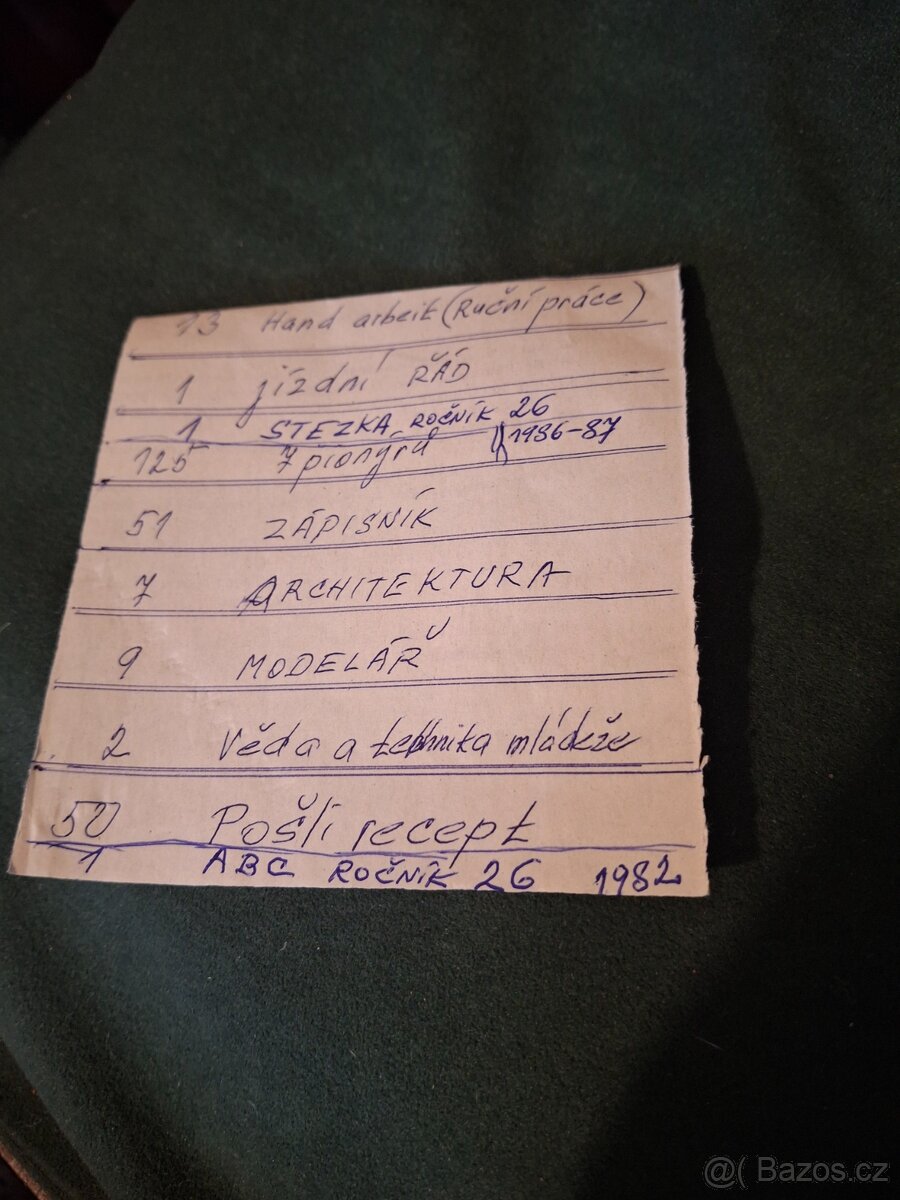 13 Hand arbeit (Ruční práce)
1 jízdní ŘÁD
1 STEZKA ROČNÍK 26
1986-87
125 7 pionýrů
51 ZÁPISNÍK
7 ARCHITEKTURA
9 MODELÁŘ
2 Věda a technika mládeže
50 Pošli recept
1 ABC ROČNÍK 26 1982
@( Bazos.cz